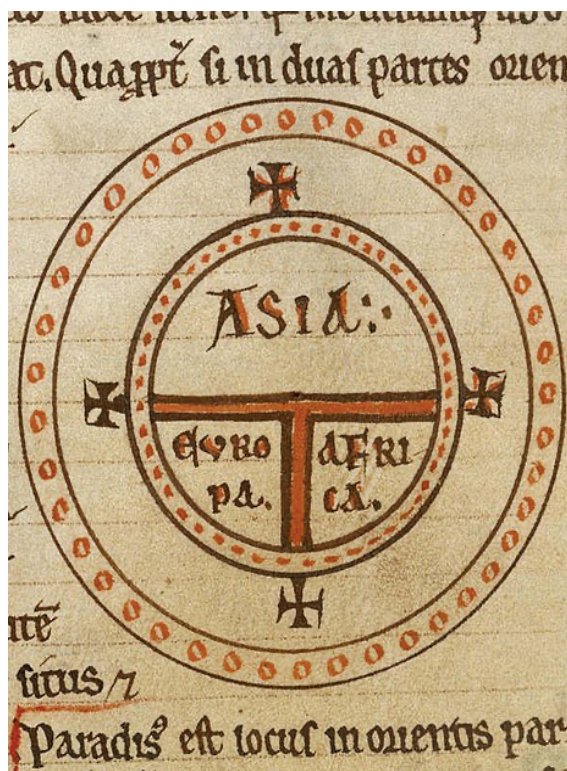 at. Quapꝓt̃ si in duas partes orien
ASIA:·
EVRO AFRI
PA. CA.
itẽ
situs ⁊
Paradisꝰ est locus in orientis par